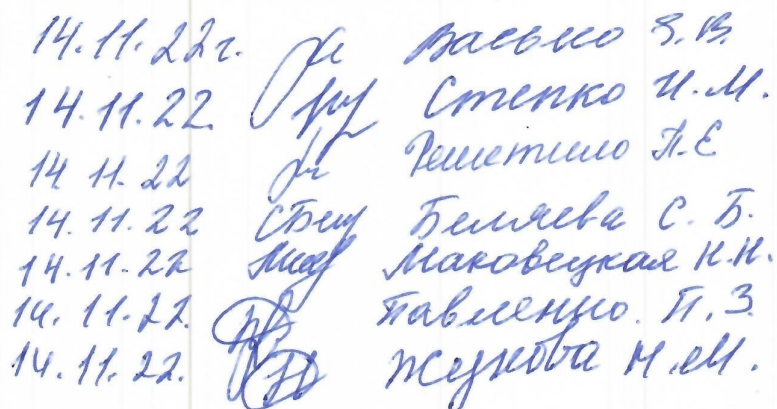 14.11.22г. Васько З.В.
14.11.22. Степко И.М.
14 11.22 Решетило П.Е
14.11.22 СБел Беляева С.Б.
14.11.22 Маковецкая Н.Н.
14.11.22. Павленко. П.З.
14.11.22. Жукова Н.М.